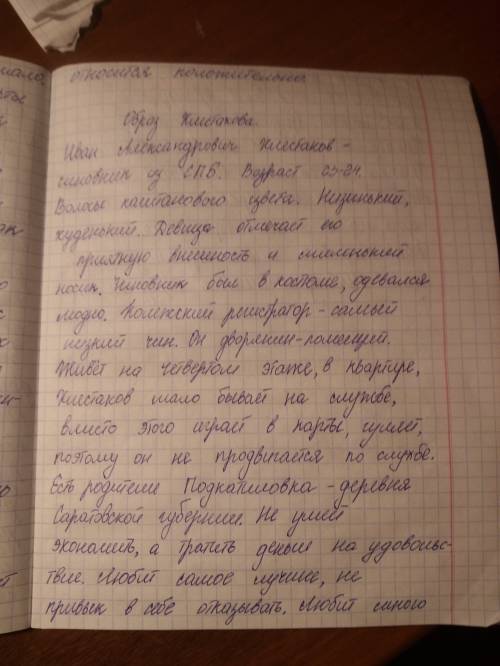 относится положительно
Образ Хлестакова.
Иван Александрович Хлестаков -
чиновник из СПБ. Возраст 23-24.
Волосы каштанового цвета. Низинький,
худенький. Девица отмечает его
приятную внешность и миленький
носик. Чиновник был в костюме, одевался
модно. Колежский регистратор - самый
низкий чин. Он дворянин-помещик.
Живёт на четвертом этаже, в квартире,
Хлестаков мало бывает на службе,
вместо этого играет в карты, гуляет,
поэтому он не продвигается по службе.
Есть родители Подкатиловка - деревня
Саратовской губернии. Не умеет
экономить, а тратить деньги на удоволь-
ствие. Любит самое лучшее, не
привык в себе отказывать. Любит много